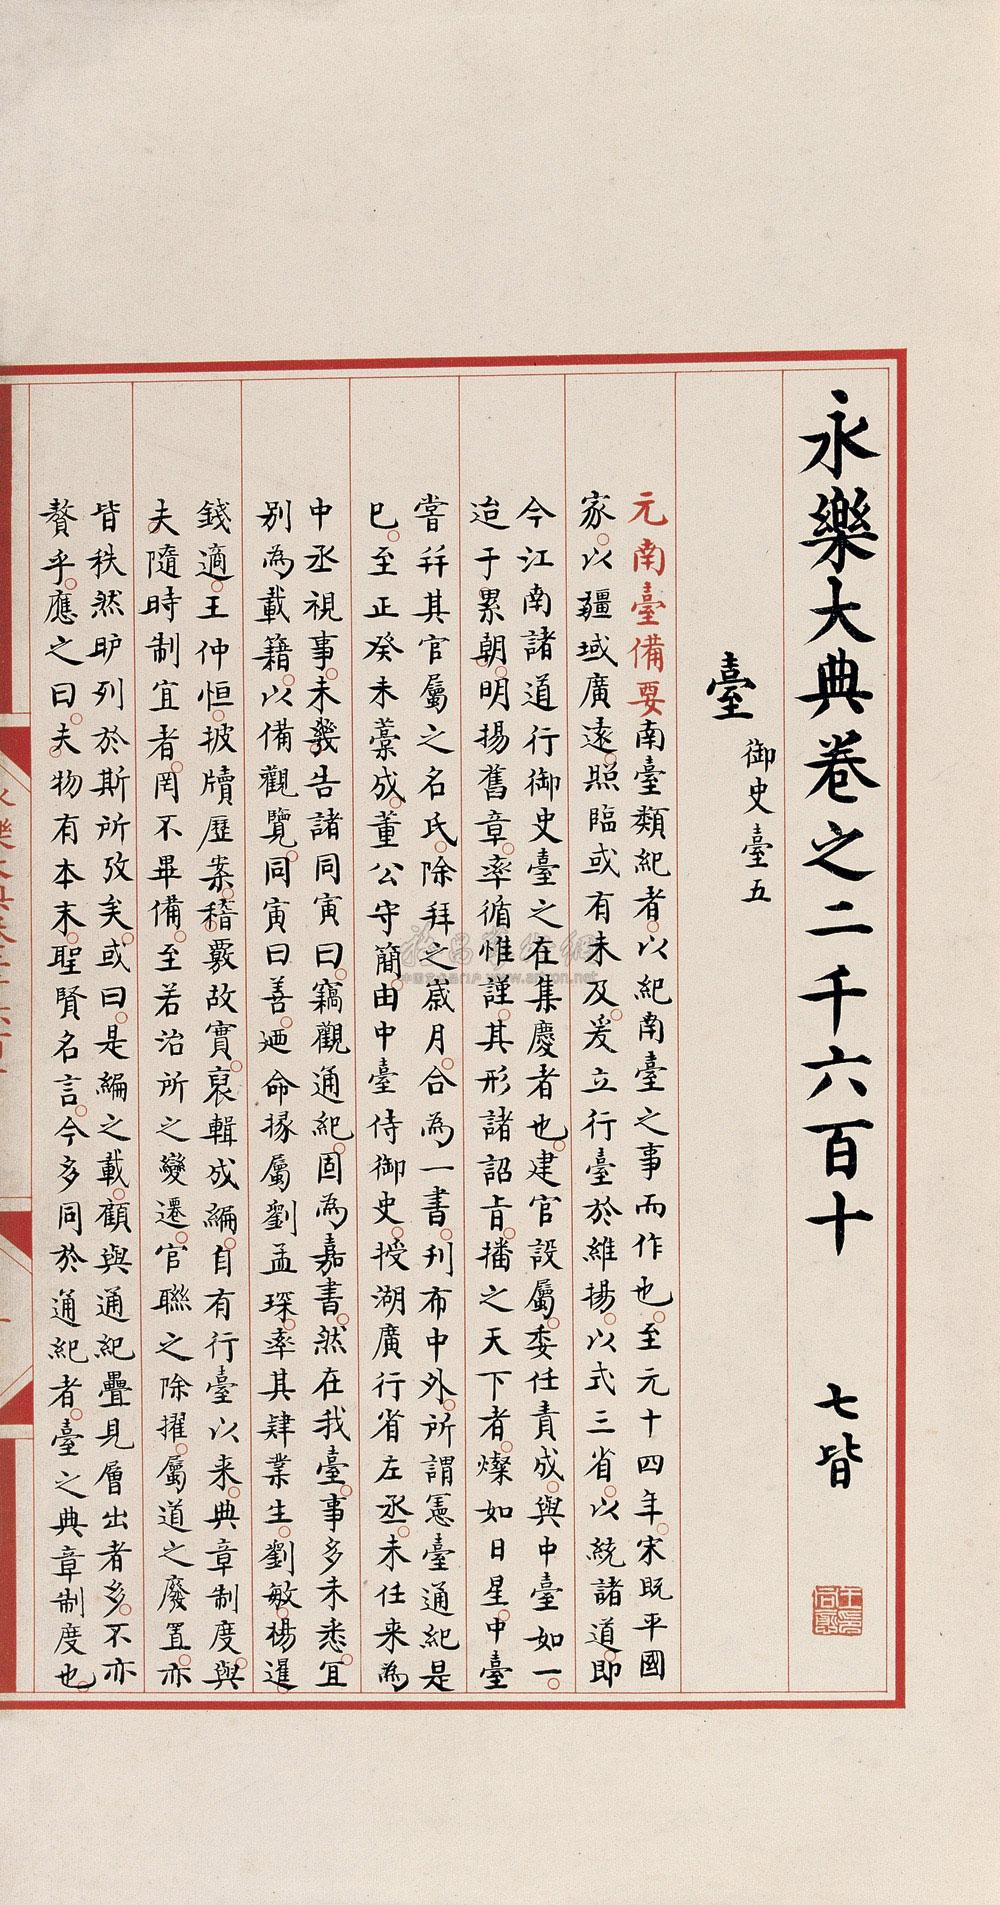 永樂大典卷之二千六百十 七皆
臺 御史臺五
元南臺備要南臺類紀者以紀南臺之事而作也至元十四年宋既平國
家以疆域廣遠照臨或有未及爰立行臺於維揚以式三省以統諸道即
今江南諸道行御史臺之在集慶者也建官設屬委任責成與中臺如一
迨于累朝明揚舊章率循惟謹其形諸詔旨播之天下者燦如日星中臺
嘗并其官屬之名氏除拜之歲月合為一書刊布中外所謂憲臺通紀是
已至正癸未藁成董公守簡由中臺侍御史授湖廣行省左丞未任来為
中丞視事未幾告諸同寅曰竊觀通紀固為嘉書然在我臺事多未悉宜
别為載籍以備觀覽同寅曰善迺命掾屬劉孟琛率其肄業生劉敏楊暹
錢適王仲恒披牘歷案稽覈故實裒輯成編自有行臺以来典章制度與
夫隨時制宜者罔不畢備至若治所之變遷官聯之除擢屬道之廢置亦
皆秩然胪列於斯所攷矣或曰是編之載顧與通紀疊見層出者多不亦
贅乎應之曰夫物有本末聖賢名言今多同於通紀者臺之典章制度也